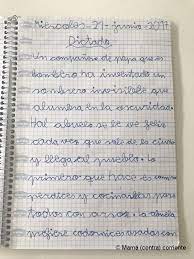 Miercoles-21-junio 2017
Dictado
Un compañero de papa que es
bombero ha inventado un
sombrero invisible que
alumbra en la oscuridad.
Al abuelo se le ve feliz
cada vez que sale de la ciu
y llega al pueblo. lo
primero que hace es com
perdices y cocinarlas para
todos con arroz. la abuela
prefiere codornices asadas con
© Mamá (contra) corriente